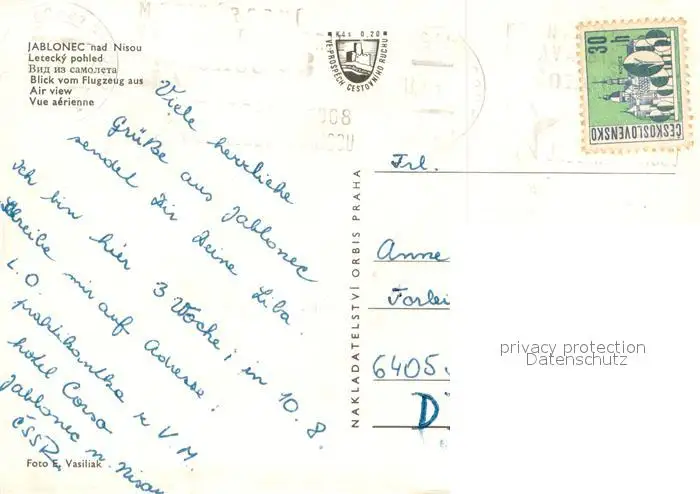 JABLONEC nad Nisou
Letecký pohled
Вид из самолета
Blick vom Flugzeug aus
Air view
Vue aérienne
Kčs 0,20
VE PROSPĚCH CESTOVNÍHO RUCHU
30 h
ČESKOSLOVENSKO
Viele herrliche
Grüße aus Jablonec
sendet Dir Deine Liba.
ich bin hier 3 Woche; in 10.8.
schreibe mir auf Adresse:
L. O.
praktikantka r V. M.
hotel Corso
Jablonec n. Nisou
ČSSR
Foto E. Vasiliak
NAKLADATELSTVÍ ORBIS PRAHA
Frl.
Anne
6405
D
privacy protection
Datenschutz